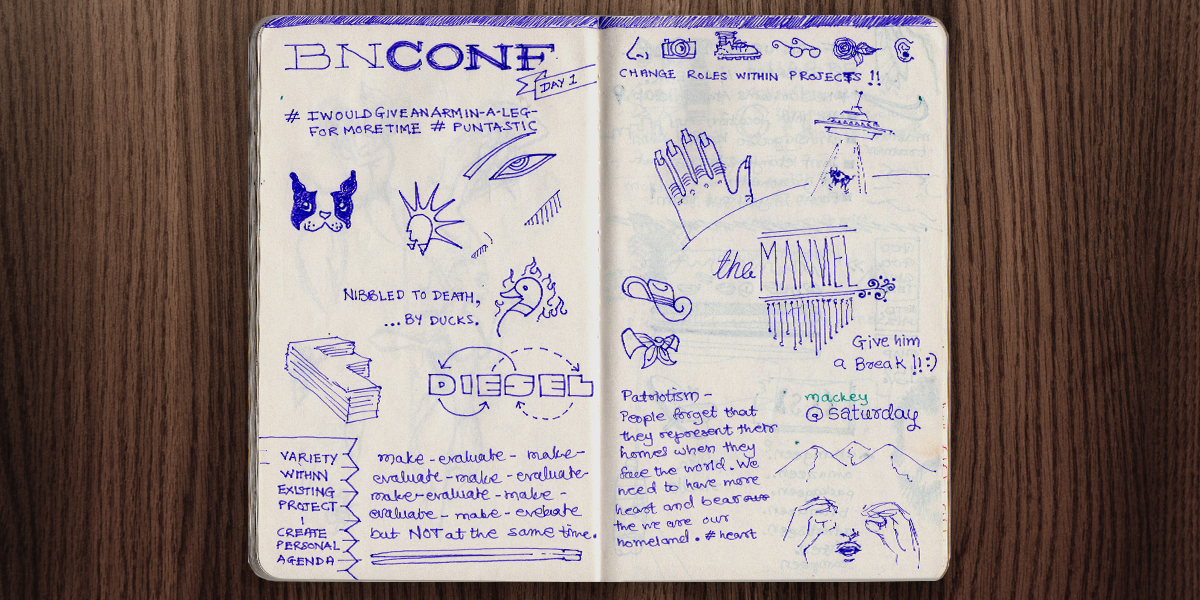 BNCONF
DAY 1
# IWOULDGIVEANARMIN-A-LEG-
FOR MORE TIME # PUNTASTIC
NIBBLED TO DEATH,
...BY DUCKS.
DIESEL
VARIETY
WITHIN
EXISTING
PROJECT
↓
CREATE
PERSONAL
AGENDA
make - evaluate - make -
evaluate - make - evaluate -
make - evaluate - make -
evaluate - make - evaluate
but NOT at the same time.
CHANGE ROLES WITHIN PROJECTS !!
the MANVIEL
Give him
a Break !! :)
Patriotism -
People forget that
they represent their
homes when they
face the world. We
need to have more
heart and bear
the we are our
homeland. #heart
mackey
@saturday